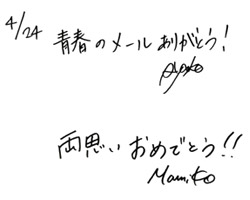 4/24
青春のメールありがとう!
Ayako
両思いおめでとう!!
Mamiko